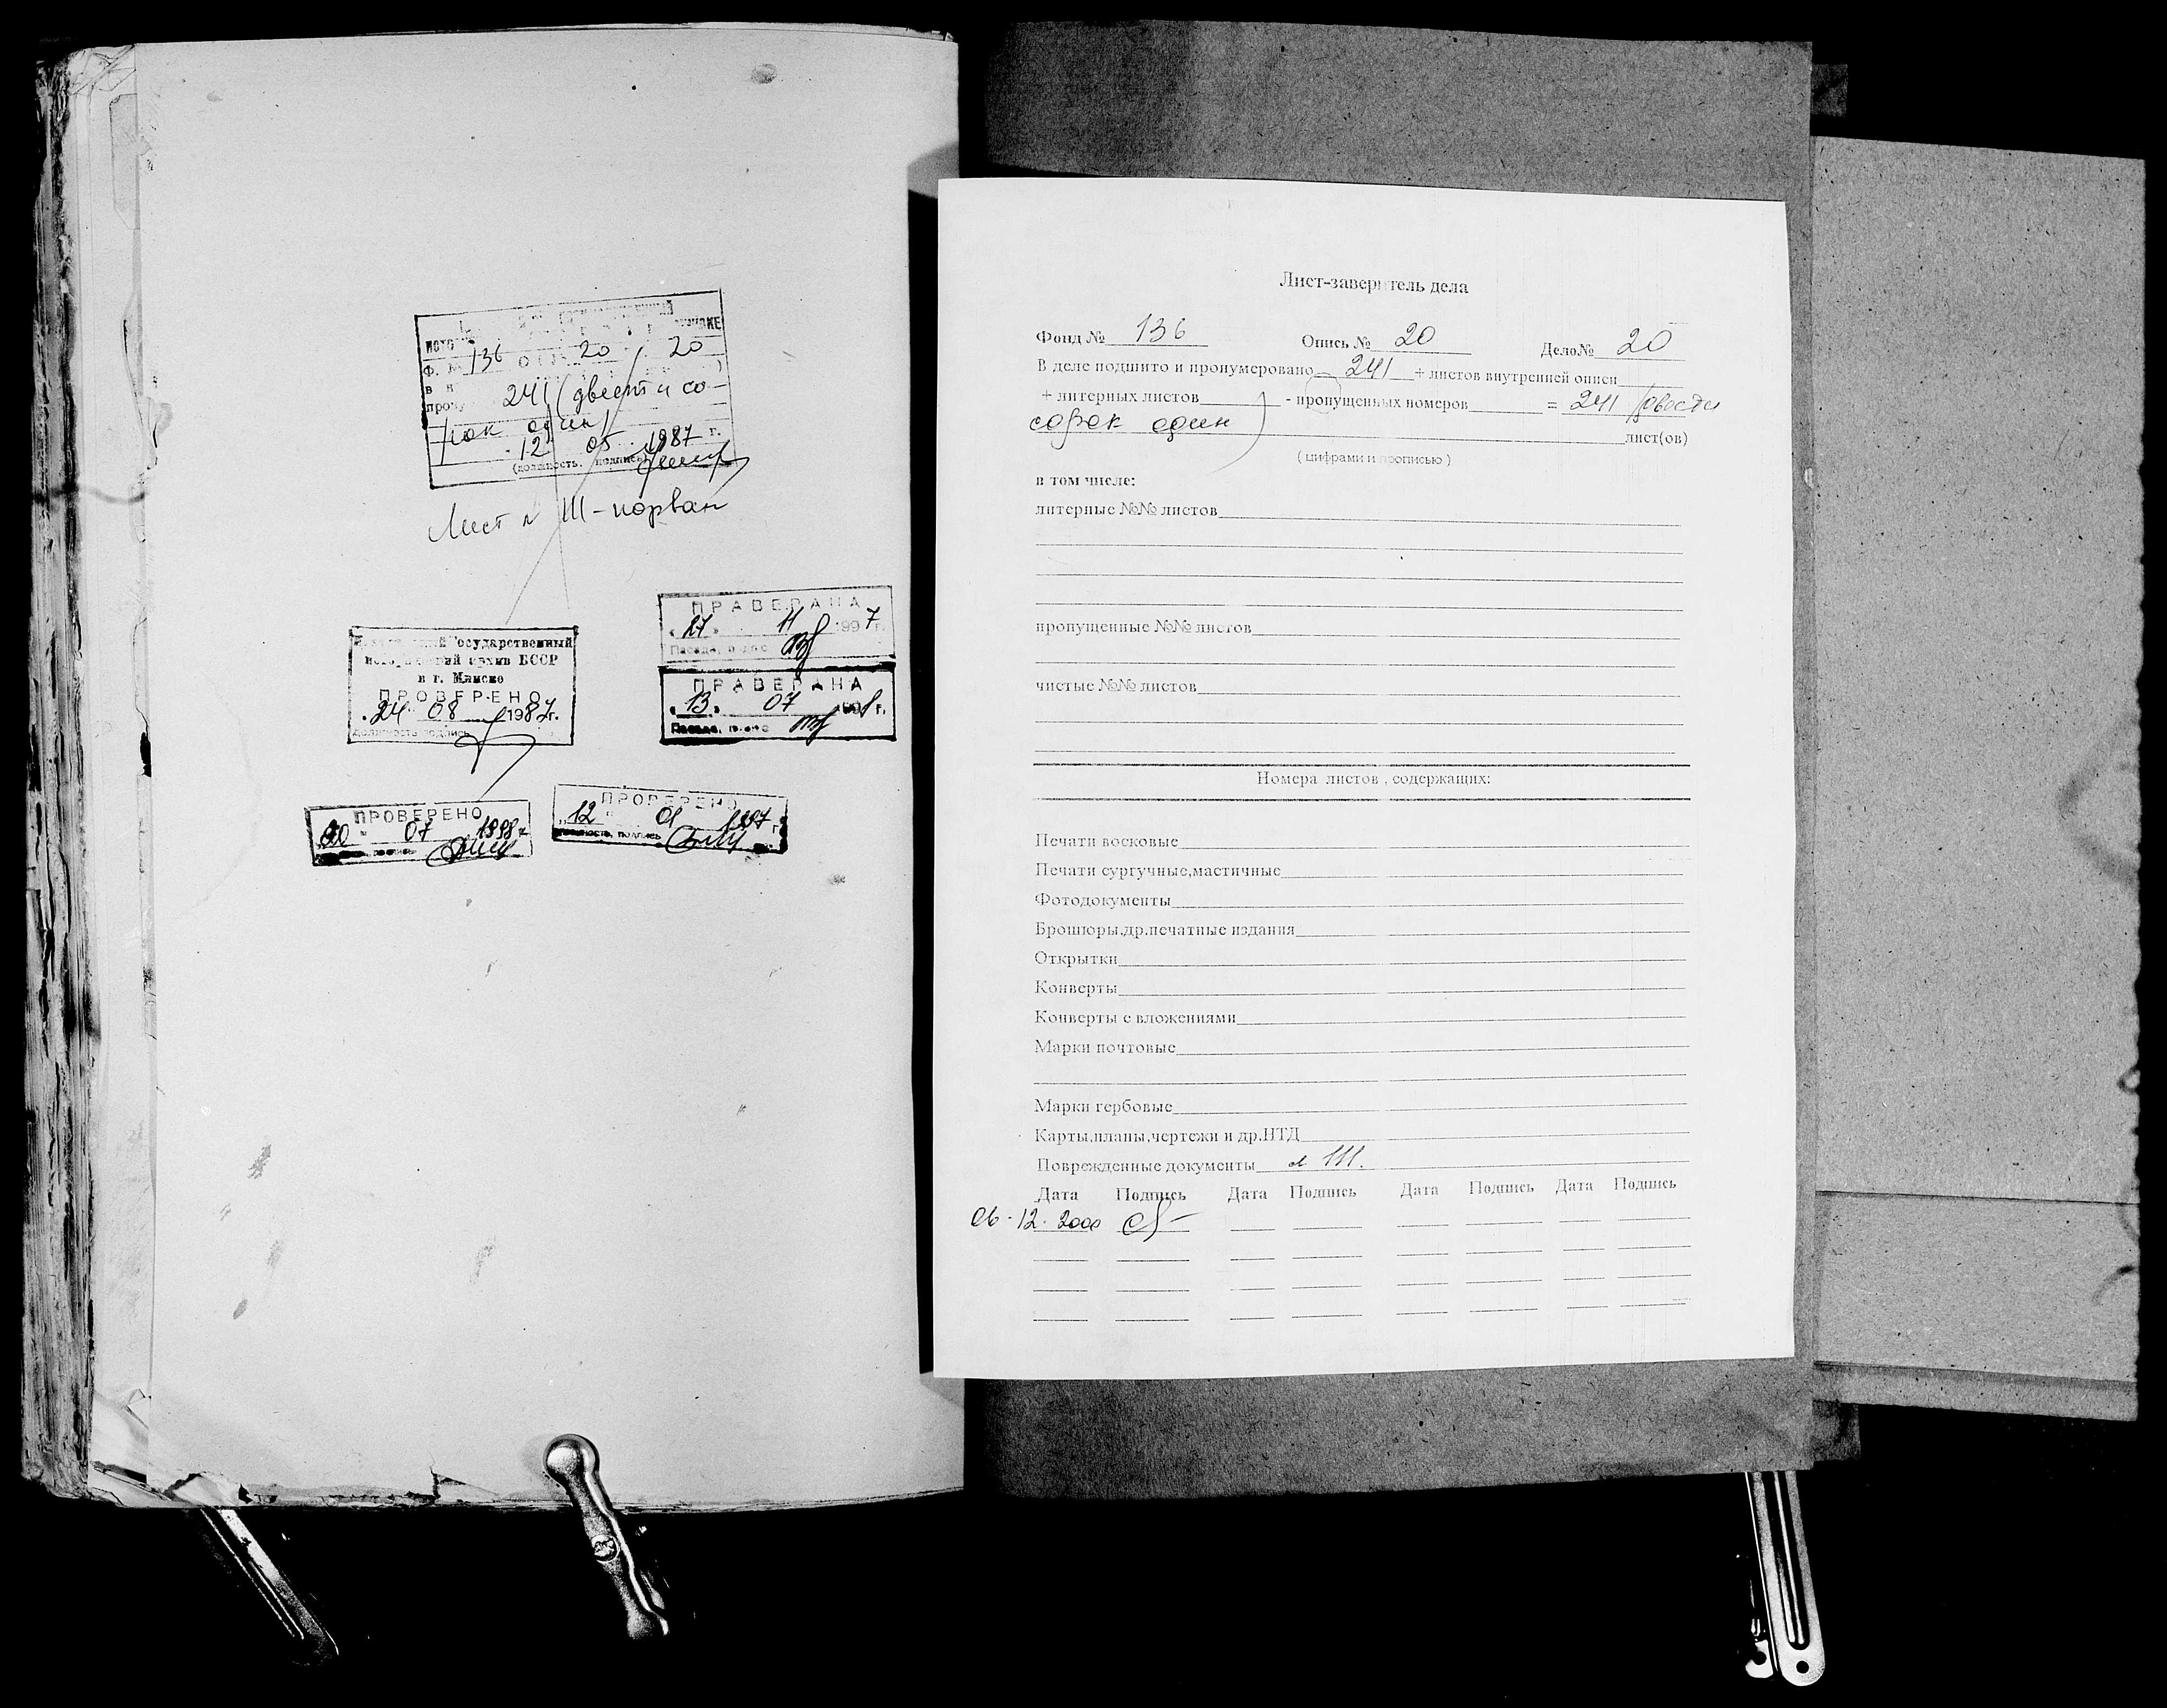 136 20 20
241 (двести со-
рок один)
12 05 1987 г.
(должность, подпись)
Лист № 111 - порван
ПРАВЕРАНА
27 11 1997 г.
Пасада,
Государственный
архив БССР
в г. Минске
ПРОВЕРЕНО
24 08 1987 г.
должность подпись
ПРАВЕРАНА
13 07 г.
Пасада,
ПРОВЕРЕНО
07 1998 г.
ПРОВЕРЕНО
12 01 1997 г.
должность, подпись
Лист-заверитель дела
Фонд № 136 Опись № 20 Дело№ 20
В деле подшито и пронумеровано 241 + листов внутренней описи
+ литерных листов - пропущенных номеров = 241 (двести
сорок один) лист(ов)
( цифрами и прописью )
в том числе:
литерные №№ листов
пропущенные №№ листов
чистые №№ листов
Номера листов , содержащих:
Печати восковые
Печати сургучные,мастичные
Фотодокументы
Брошюры,др.печатные издания
Открытки
Конверты
Конверты с вложениями
Марки почтовые
Марки гербовые
Карты,планы,чертежи и др.НТД
Поврежденные документы л 111.
Дата Подпись Дата Подпись Дата Подпись Дата Подпись
06.12.2000